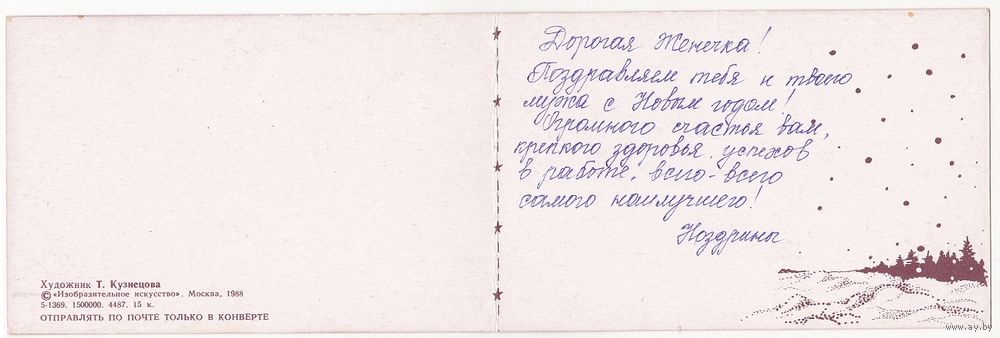 Дорогая Женечка!
Поздравляем тебя и твоего
мужа с Новым годом!
Огромного счастья вам,
крепкого здоровья, успехов
в работе, всего-всего
самого наилучшего!
Ноздрины
Художник Т. Кузнецова
© «Изобразительное искусство». Москва, 1988
5-1369. 1500000. 4487. 15 к.
ОТПРАВЛЯТЬ ПО ПОЧТЕ ТОЛЬКО В КОНВЕРТЕ
www.ay.by